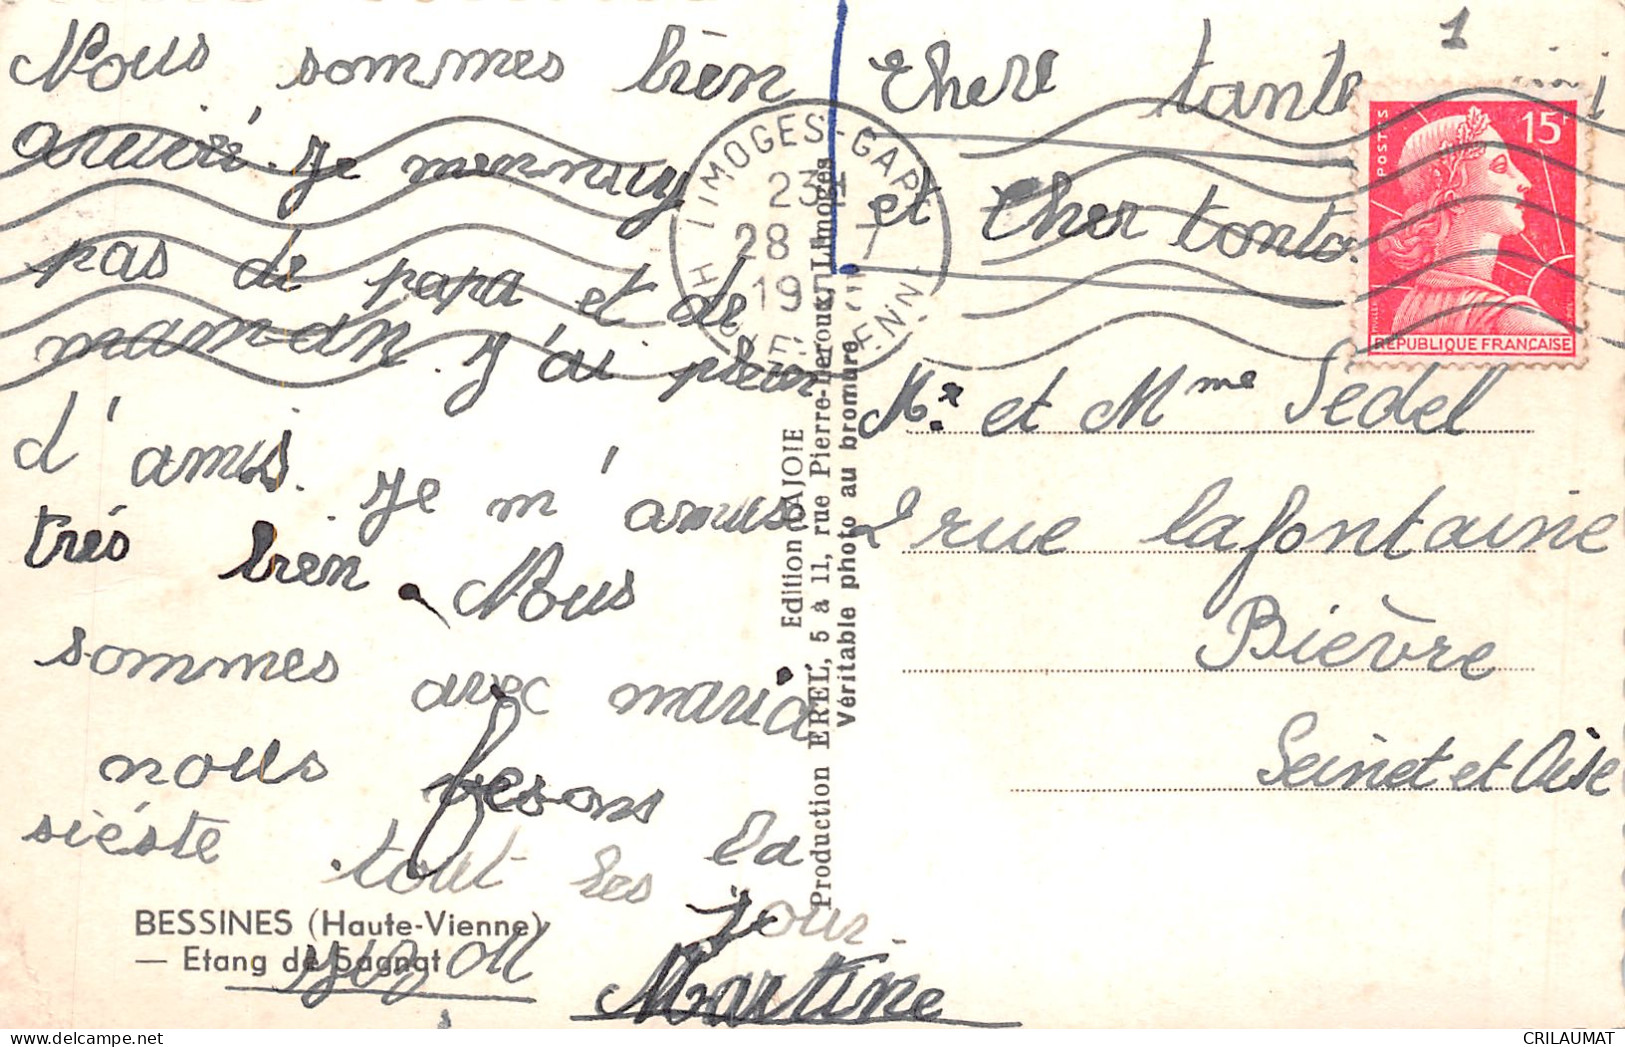 1
Chere tante
et Cher tonto
Nous sommes bien
arrivé. Je mennuy
pas de papa et de
maman. J'ai plein
d'amis. Je m'amuse
trés bien. Nous
sommes avec maria
nous fesons la
siéste tout les
jour.
Martine
BESSINES (Haute-Vienne)
— Etang de Sagnat
Edition LAJOIE
Production EREL, 5 à 11, rue Pierre-Leroux, Limoges
Véritable photo au bromure
LIMOGES-GARE
23H
28 7
19
Hte VIENNE
POSTES
15F
REPUBLIQUE FRANÇAISE
Mr. et Mme Sedel
2 rue lafontaine
Bièvre
Seinet et Oise
CRILAUMAT